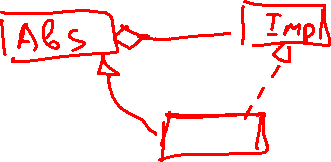 Abs
Impl